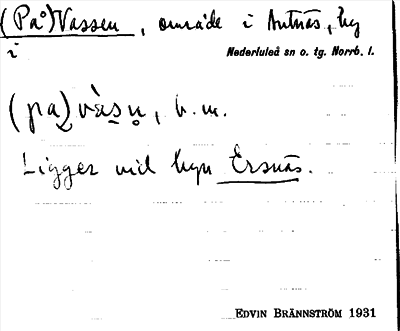 (På)Vassen, område i Antnäs, by
i Nederluleå sn o. tg. Norrb. l.
(pa)vàsn̥, b. m.
Ligger vid byn Ersnäs.
EDVIN BRÄNNSTRÖM 1931